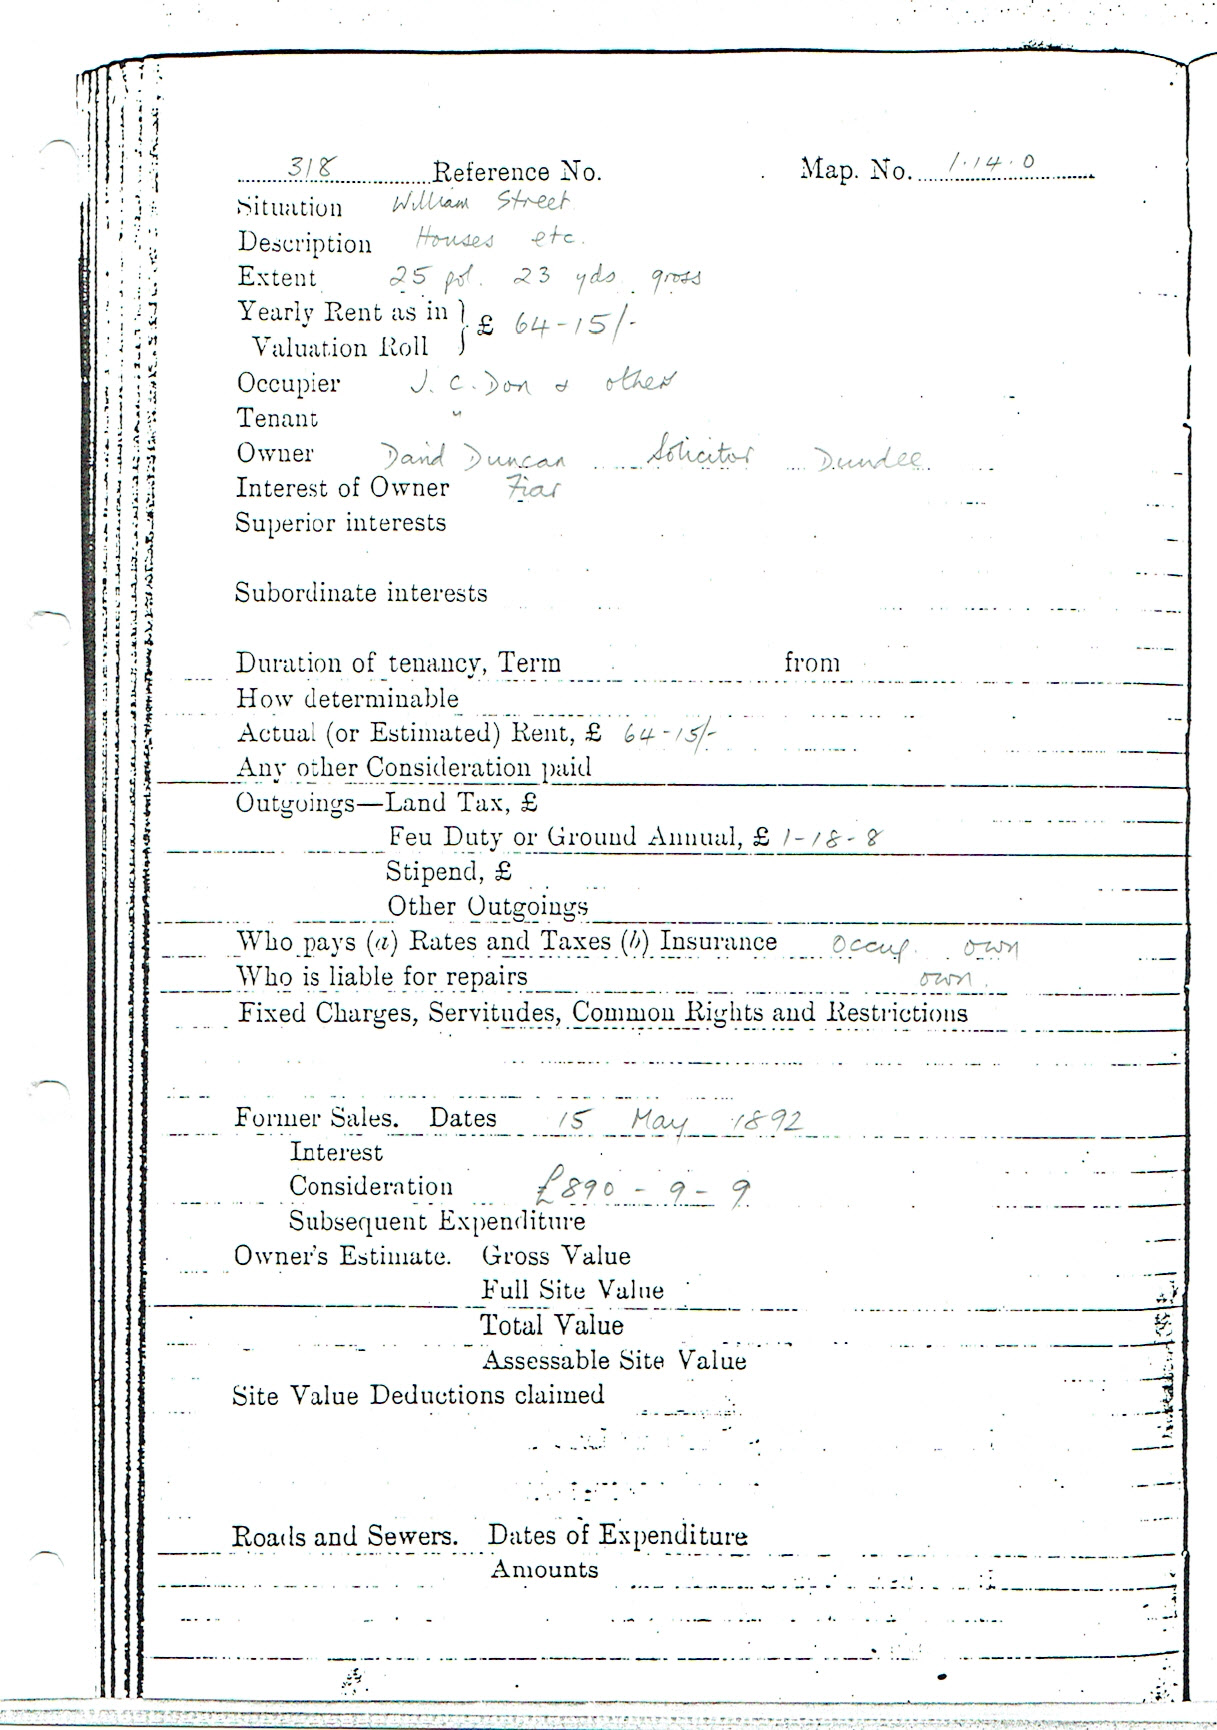 318 Reference No. Map. No. 1.14.0
Situation William Street
Description Houses etc.
Extent 25 pol. 23 yds. gross
Yearly Rent as in
Valuation Roll } £ 64-15/-
Occupier J. C. Don & others
Tenant "
Owner David Duncan Solicitor Dundee
Interest of Owner Fiar
Superior interests
Subordinate interests
Duration of tenancy, Term from
How determinable
Actual (or Estimated) Rent, £ 64-15/-
Any other Consideration paid
Outgoings—Land Tax, £
Feu Duty or Ground Annual, £ 1-18-8
Stipend, £
Other Outgoings
Who pays (a) Rates and Taxes (b) Insurance Occup. own
Who is liable for repairs own.
Fixed Charges, Servitudes, Common Rights and Restrictions
Former Sales. Dates 15 May 1892
Interest
Consideration £890-9-9
Subsequent Expenditure
Owner's Estimate. Gross Value
Full Site Value
Total Value
Assessable Site Value
Site Value Deductions claimed
Roads and Sewers. Dates of Expenditure
Amounts